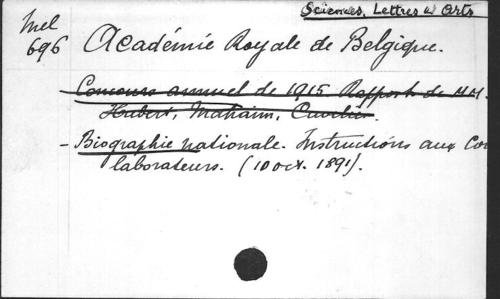 Sciences, Lettres et Arts
Mel
696
Académie Royale de Belgique.
Concours annuel de 1915 Rapports de MM.
Hubert, Mahaim,
- Biographie nationale. Instructions aux Co
laborateurs. (10 oct. 1891).